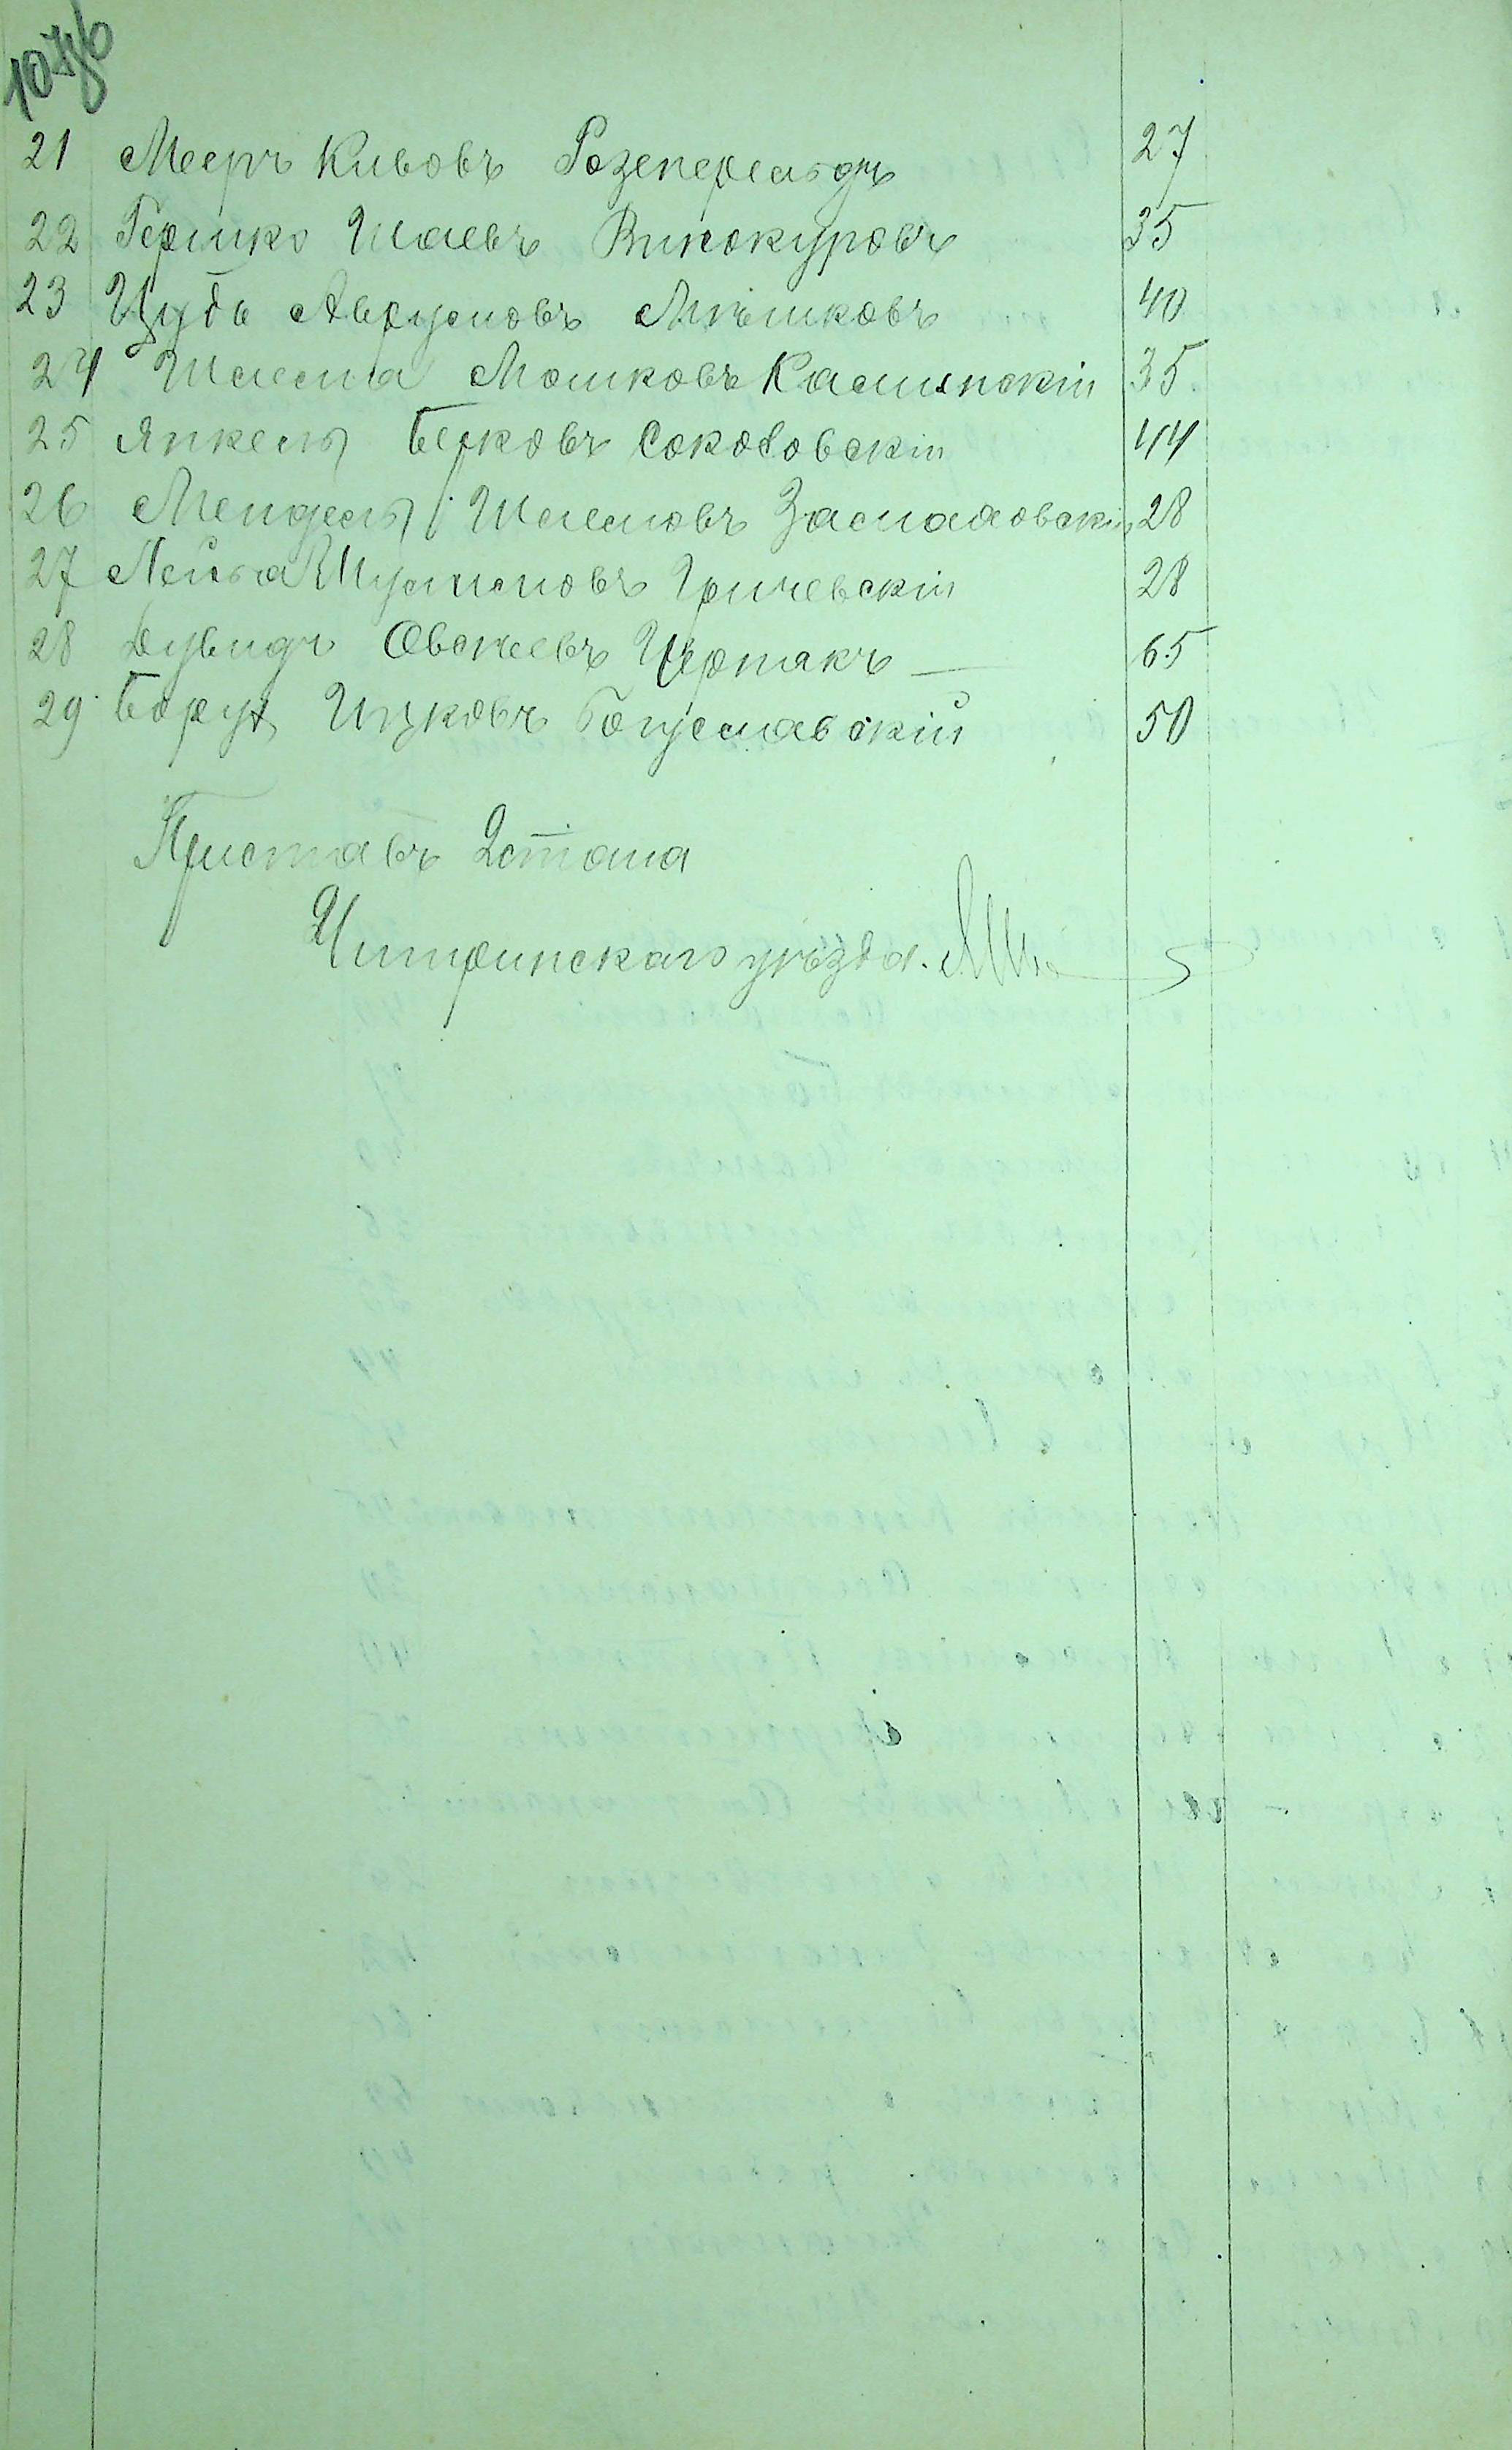 107об
21 Мееръ Кивовъ Розенфельдъ 27
22 Гершко Шаевъ Винокуровъ 35
23 Цудь Аврумовъ Мѣшковъ 40
24 Шлема Мошковъ Калинскій 35
25 Янкель Берковъ Соколовскій 44
26 Мендель Шлемовъ Заславскій 28
27 Лейба Шулимовъ Гричевскій 28
28 Дувидъ Овшеевъ Чертакъ 65
29 Борух Ицковъ Богуславскій 50
Приставъ 2 стана
Чигиринскаго уѣзда.